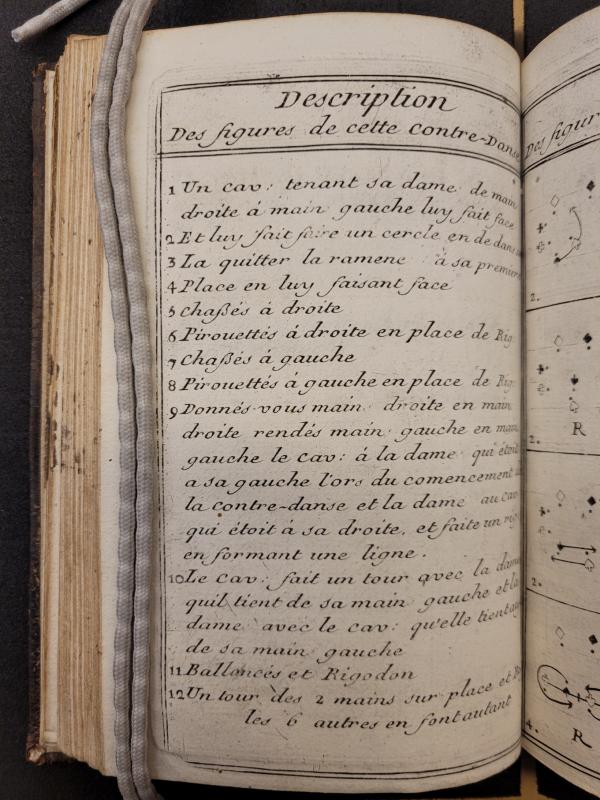 Description
Des figures de cette Contre-Danse
1 Un cav: tenant sa dame de main
droite á main gauche luy fait face
2 Et luy fait faire un cercle en dedans
3 La quitter la ramene á sa premiere
4 Place en luy faisant face
5 Chaßés á droite
6 Pirouettés á droite en place de Rig.
7 Chaßés á gauche
8 Pirouettés á gauche en place de Rig:
9 Donnés vous main droite en main
droite rendés main gauche en main
gauche le cav: á la dame qui étoit
a sa gauche l'ors du comencement
la contre-danse et la dame au cav
qui étoit á sa droite, et faite un rig
en formant une ligne.
10 Le Cav: fait un tour avec la dame
quil tient de sa main gauche et la
dame avec le cav: qu'elle tient
de sa main gauche
11 Ballancés et Rigodon
12 Un tour des 2 mains sur place et
les 6 autres en font autant
Des figur
2.
2.
R
2.
4.
R